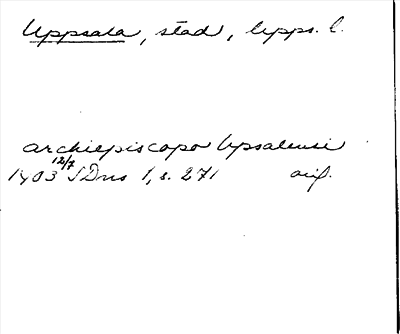 Uppsala, stad, Upps. l.
archiepiscopo Upsalensi
1403 12/7 SDns 1, s. 271 avs.